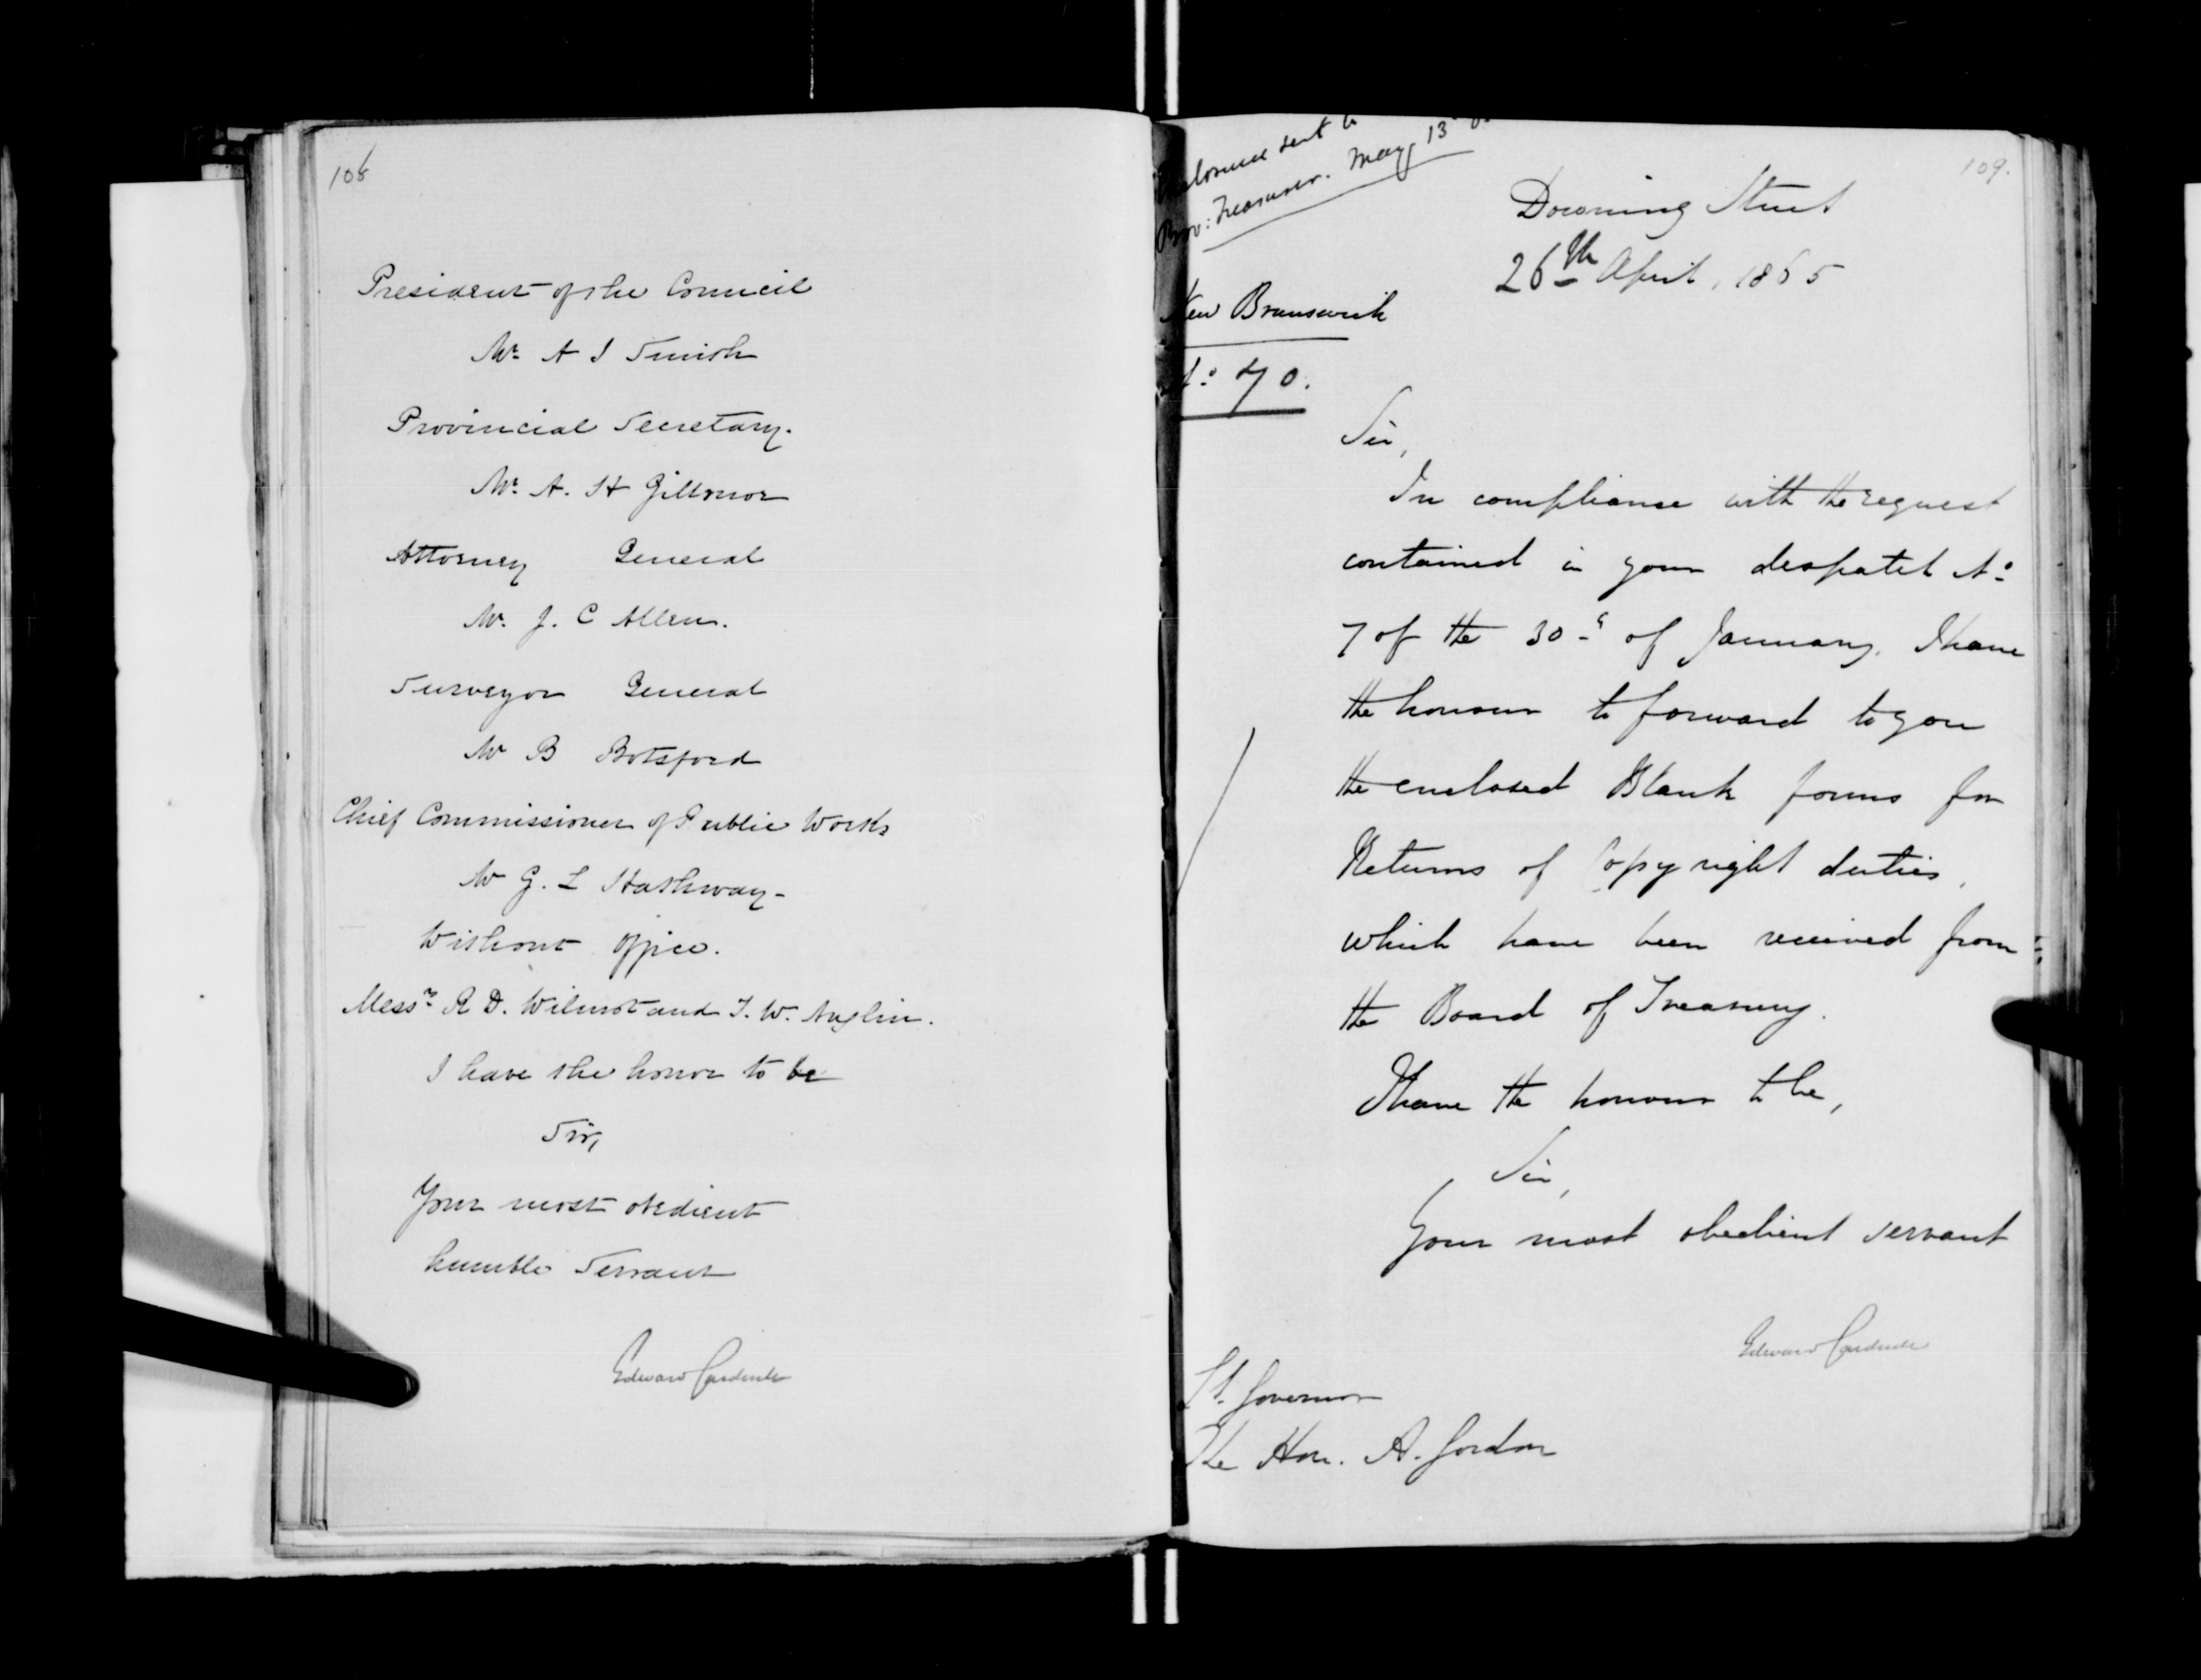 108
President of the Council
Mr A J Smith
Provincial Secretary.
Mr. A. H Gillmor
Attorney General
Mr. J. C Allen.
Surveyor General
Mr B Botsford
Chief Commissioner of Public Works
Mr G. L Hathway-
Without Office.
Messrs R D. Wilmot and T. W. Anglin.
I have the honor to be
Sir,
Your most obedient
humble Servant
Edward Cardwell
109.
closure sent to
Prov: Treasurer. May 13
Downing Street
26th April, 1865
New Brunswick
No 70.
Sir,
In compliance with the request
contained in your despatch No
7 of the 30th of January, I have
the honour to forward to you
the enclosed Blank forms for
Returns of Copyright duties,
which have been received from
the Board of Treasury.
I have the honour to be,
Sir,
Your most obedient servant
Edward Cardwell
Lt. Governor
The Hon. A. Gordon